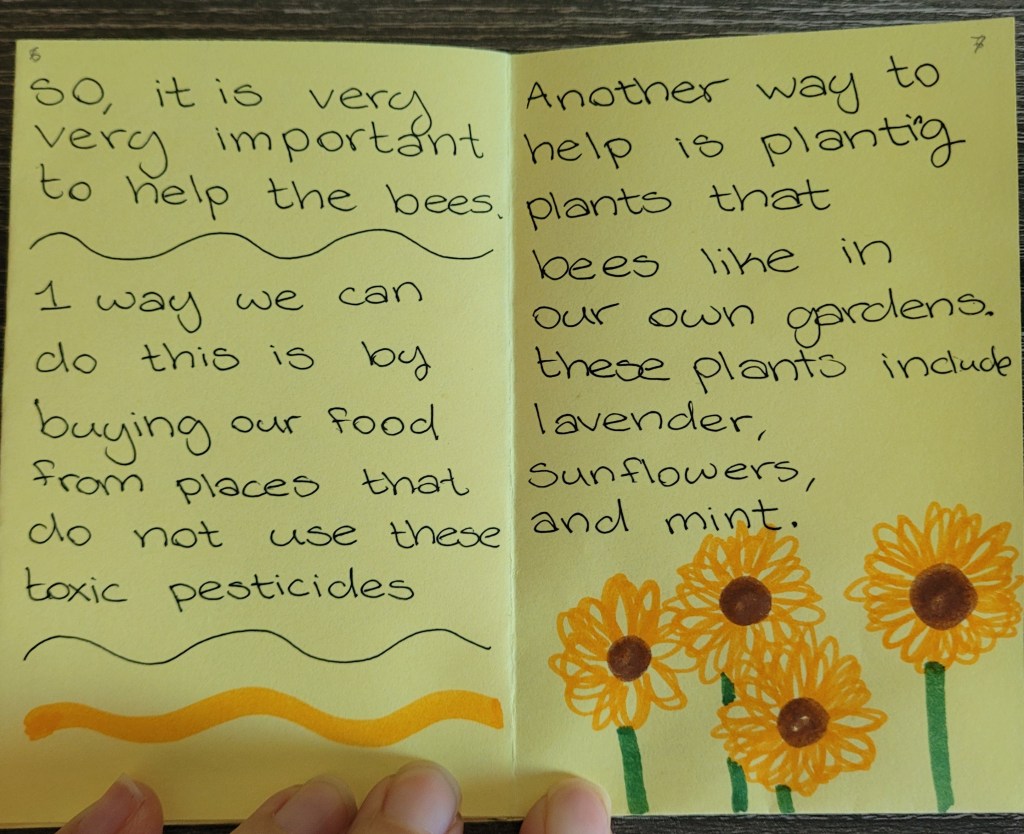 SO, it is very
very important
to help the bees.
1 way we can
do this is by
buying our food
from places that
do not use these
toxic pesticides
7
Another way to
help is planting
plants that
bees like in
our own gardens.
these plants include
lavender,
sunflowers,
and mint.